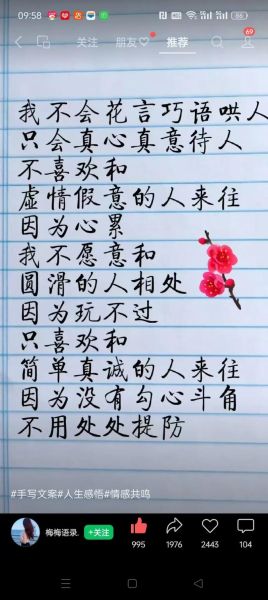 09:58
86
关注
朋友
推荐
69
我不会花言巧语哄人
只会真心真意待人
不喜欢和
虚情假意的人来往
因为心累
我不愿意和
圆滑的人相处
因为玩不过
只喜欢和
简单真诚的人来往
因为没有勾心斗角
不用处处提防
#手写文案#人生感悟#情感共鸣
梅梅语录.
+关注
995
1976
2443
104